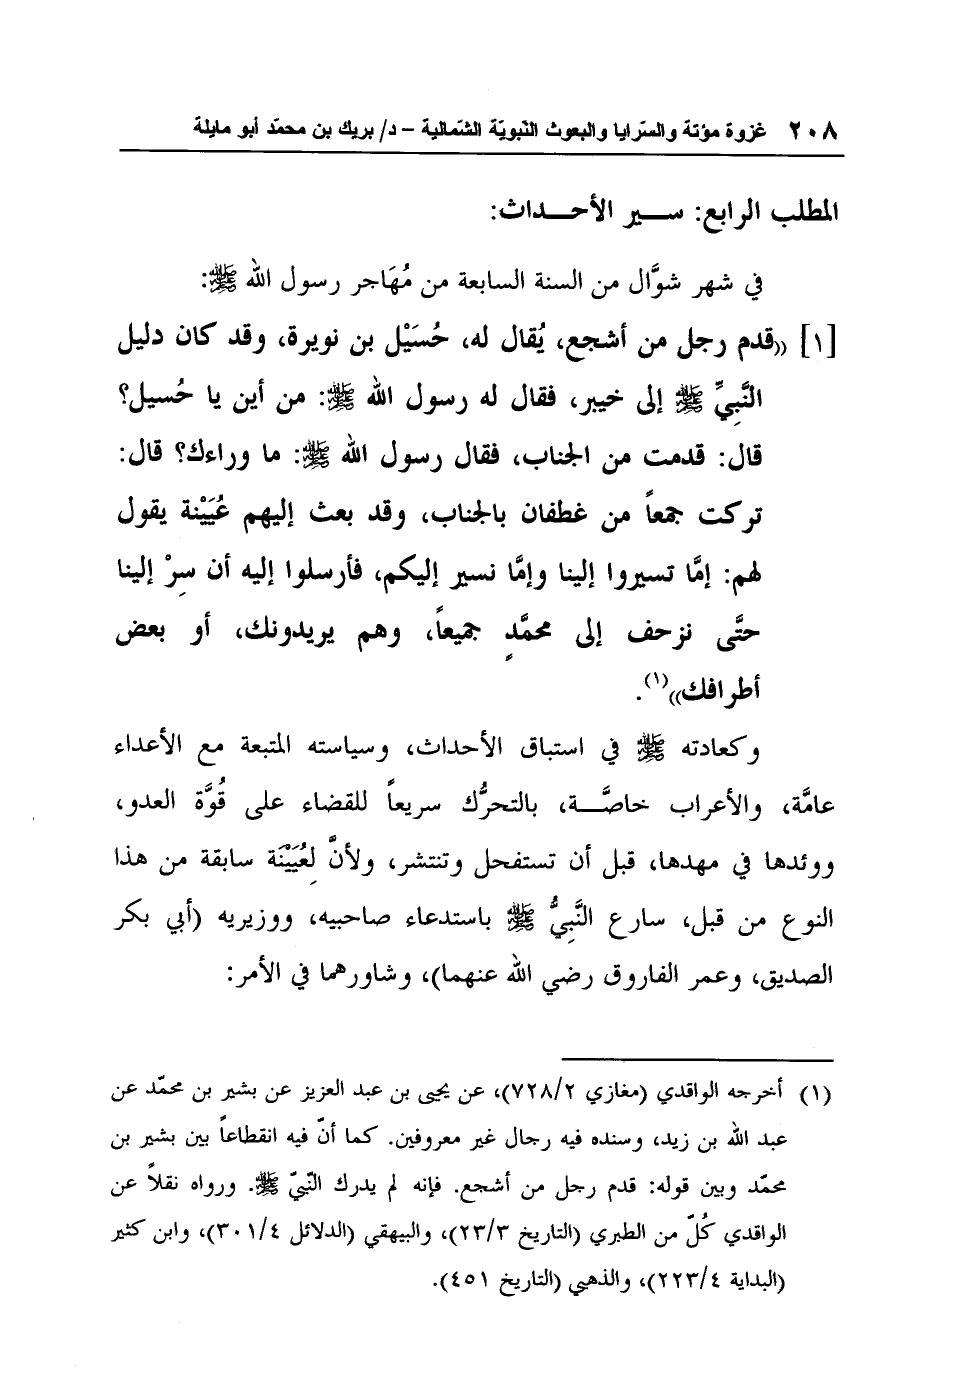 ٢٠٨ غزوة مؤتة والسّرايا والبعوث النّبويّة الشّماليّة – د/ بريك بن محمّد أبو مايلة
المطلب الرابع: ســير الأحــداث:
في شهر شوَّال من السنة السابعة من مُهَاجر رسول الله ﷺ:
[١] ((قدم رجل من أشجع، يُقال له، حُسَيْل بن نويرة، وقد كان دليل
النَّبِيِّ ﷺ إلى خيبر، فقال له رسول الله ﷺ: من أين يا حُسيل؟
قال: قدمت من الجناب، فقال رسول الله ﷺ: ما وراءك؟ قال:
تركت جمعاً من غطفان بالجناب، وقد بعث إليهم عُيَيْنة يقول
لهم: إمَّا تسيروا إلينا وإمَّا نسير إليكم، فأرسلوا إليه أن سِرْ إلينا
حتَّى نزحف إلى محمَّدٍ جميعاً، وهم يريدونك، أو بعض
أطرافك))(١).
وكعادته ﷺ في استباق الأحداث، وسياسته المتبعة مع الأعداء
عامَّة، والأعراب خاصَّــة، بالتحرُّك سريعاً للقضاء على قُوَّة العدو،
ووئدها في مهدها، قبل أن تستفحل وتنتشر، ولأنَّ لِعُيَيْنَة سابقة من هذا
النوع من قبل، سارع النَّبِيُّ ﷺ باستدعاء صاحبيه، ووزيريه (أبي بكر
الصديق، وعمر الفاروق رضي الله عنهما)، وشاورهما في الأمر:
(١) أخرجه الواقدي (مغازي ٧٢٨/٢)، عن يحيى بن عبد العزيز عن بشير بن محمّد عن
عبد الله بن زيد، وسنده فيه رجال غير معروفين. كما أنّ فيه انقطاعاً بين بشير بن
محمّد وبين قوله: قدم رجل من أشجع. فإنه لم يدرك النّبيّ ﷺ. ورواه نقلاً عن
الواقدي كُلّ من الطبري (التاريخ ٢٣/٣)، والبيهقي (الدلائل ٣٠١/٤)، وابن كثير
(البداية ٢٢٣/٤)، والذهبي (التاريخ ٤٥١).